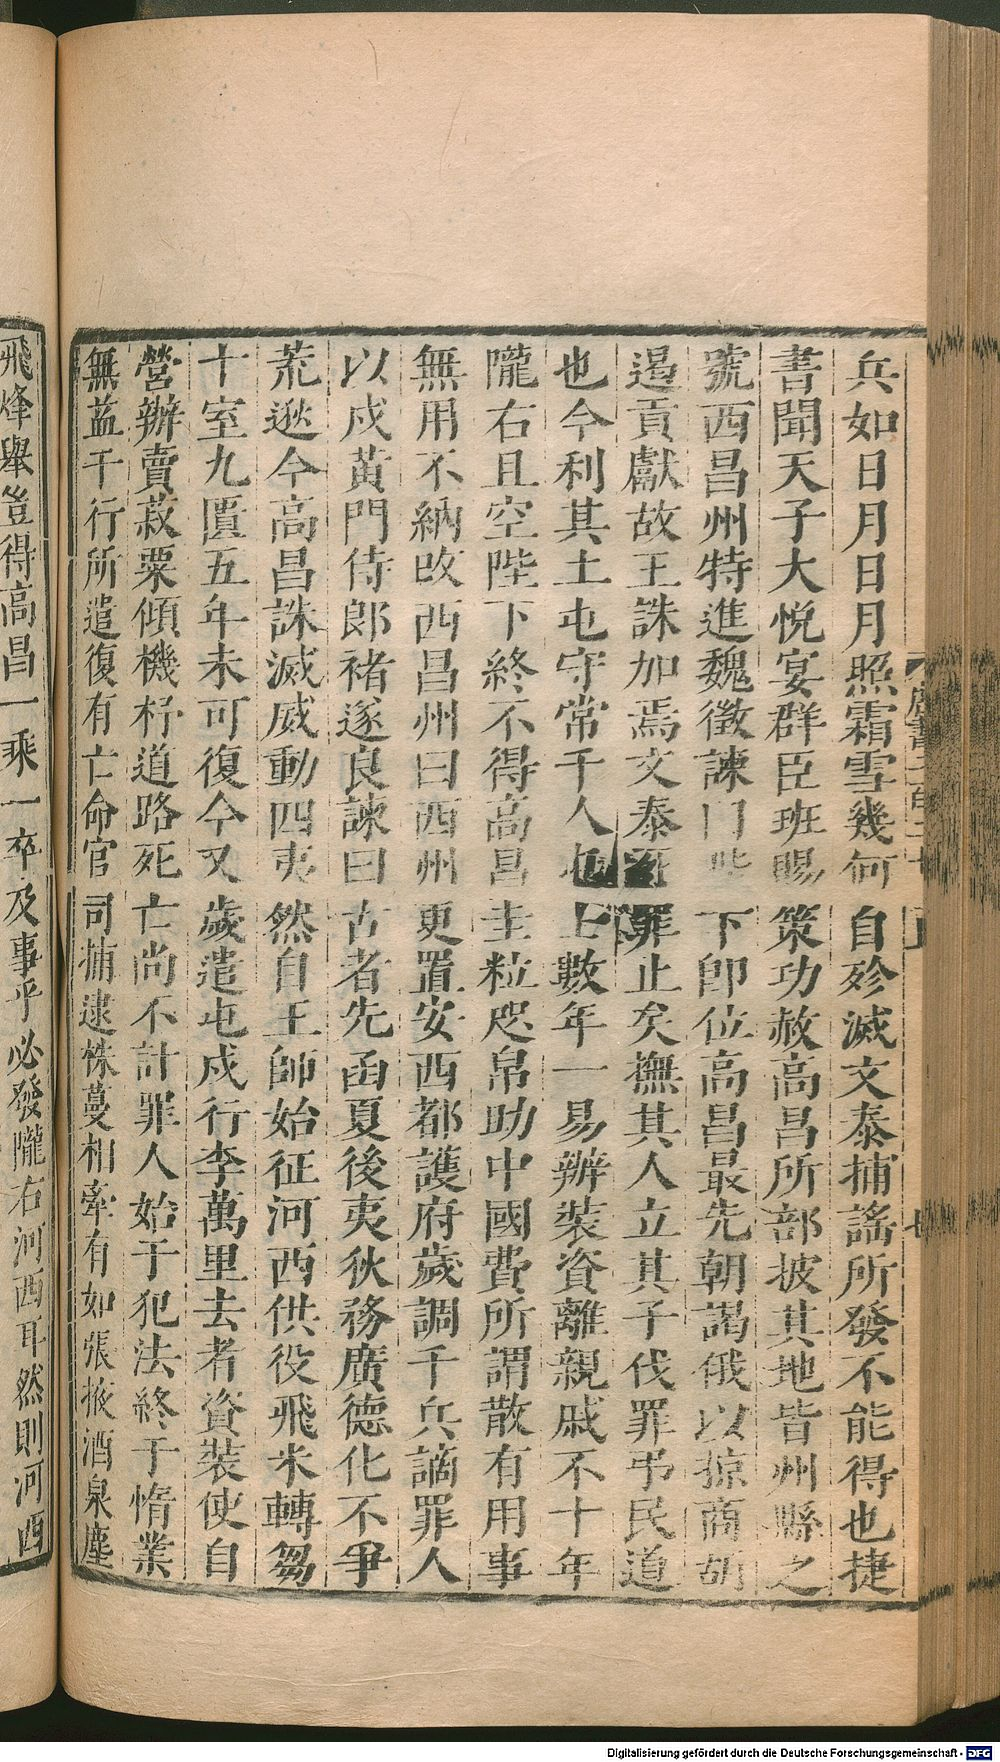 兵如日月日月照霜雪幾何自殄滅文泰捕謠所發不能得也捷
書聞天子大悅宴群臣班賜策功赦高昌所部披其地皆州縣之
號西昌州特進魏徵諫曰陛下卽位高昌最先朝謁俄以掠商胡
遏貢獻故王誅加焉文泰罪止矣撫其人立其子伐罪弔民道
也今利其土屯守常千人屯士數年一易辦裝資離親戚不十年
隴右且空陛下終不得高昌圭粒咫帛助中國費所謂散有用事
無用不納改西昌州曰西州更置安西都護府歲調千兵謫罪人
以戍黃門侍郎褚遂良諫曰古者先函夏後夷狄務廣德化不爭
荒逖今高昌誅滅威動四夷然自王師始征河西供役飛米轉芻
十室九匱五年未可復今又歲遣屯戍行李萬里去者資裝使自
營辦賣菽粟傾機杼道路死亡尚不計罪人始于犯法終于惰業
無益于行所遣復有亡命官司捕逮株蔓相牽有如張掖酒泉塵
飛烽舉豈得高昌一乘一卒及事乎必發隴右河西耳然則河西
Digitalisierung gefördert durch die Deutsche Forschungsgemeinschaft - DFG